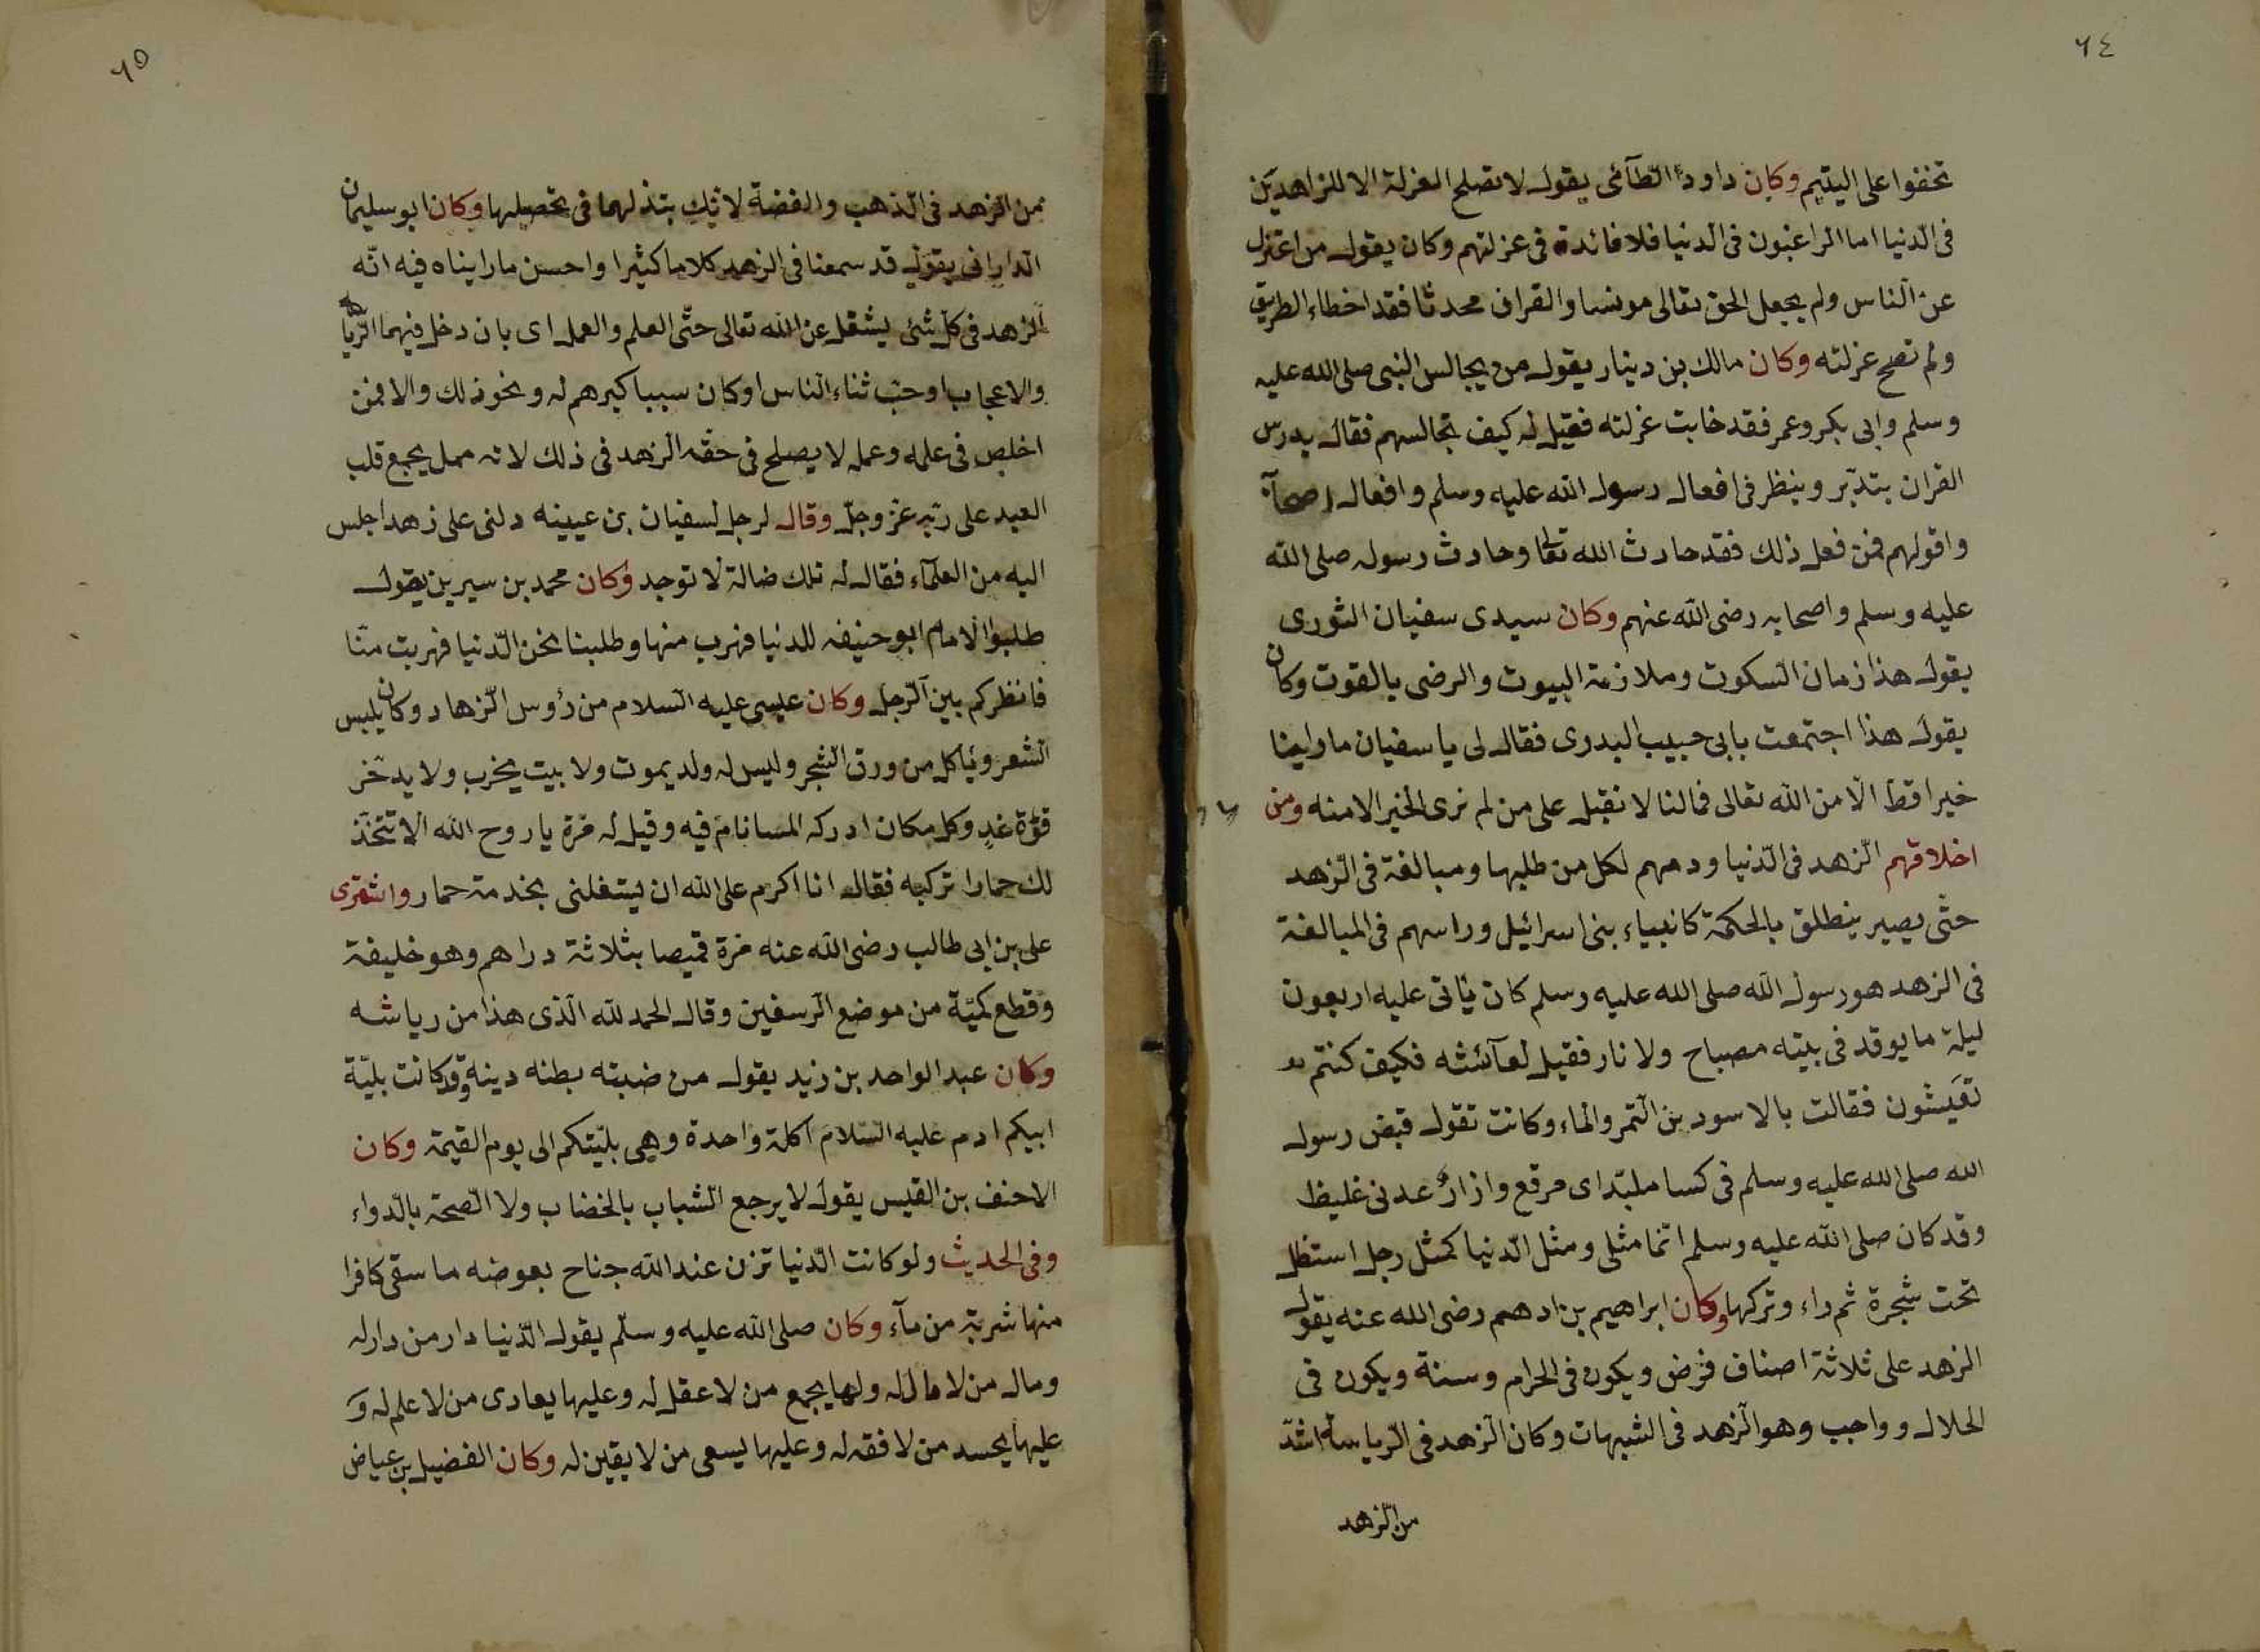 ٦٤
تخففوا على اليتيم وكان داود الطآئى يقول لا تصلح العزلة الا للزاهدين
فى الدنيا اما الراغبون فى الدنيا فلا فائدة فى عزلتهم وكان يقول من اعتزل
عن الناس ولم يجعل الحق تعالى مونسا والقران محدثا فقد اخطاء الطريق
ولم تصح عزلته وكان مالك بن دينار يقول من يجالس النبى صلى الله عليه
وسلم وابى بكر وعمر فقد خابت عزلته فقيل له كيف تجالسهم فقال يدرس
القران بتدبّر وينظر فى افعال رسول الله عليه وسلم وافعال اصحآبه
واقولهم فمن فعل ذلك فقد حادث الله تعالى وحادث رسوله صلى الله
عليه وسلم واصحابه رضى الله عنهم وكان سيدى سفيان الثورى
يقول هذا زمان السكوت وملازمة البيوت والرضى بالقوت وكان
يقول هذا اجتمعت بابى حبيب البدرى فقال لى يا سفيان ما راينا
خيرا قط الّا من الله تعالى فمالنا لا نقبل على من لم نرى الخير الا منه ومن
اخلاقهم الزهد فى الدّنيا ودمهم لكل من طلبها ومبالغة فى الزهد
حتّى يصير ينطلق بالحكمة كانبياء بنى اسرائيل وراسهم فى المبالغة
فى الزهد هو رسول الله صلى الله عليه وسلم كان ئاتى عليه اربعون
ليلة ما يوقد فى بيته مصباح ولا نار فقيل لعآئشه فكيف كنتم
تعيشون فقالت بالاسودين التمر والماء وكانت تقول قبض رسول
الله صلى الله عليه وسلم فى كسا ملبّد اى مرقع وازار عدنى غليظ
وقد كان صلى الله عليه وسلم انّما مثلى ومثل الدّنيا كمثل رجل استظل
تحت شجرة ثم راء وتركها وكان ابراهيم بن ادهم رضى الله عنه يقول
الزهد على ثلاثة اصناف فرض ويكون فى الحرام وسنة ويكون فى
الحلال وواجب وهو الزهد فى الشبهات وكان الزهد فى الرياسة اشدّ
من الزهد
٦٥
من الزهد فى الذهب والفضة لانك بتذلهما فى تحصيلها وكان ابو سليمان
الدارانى يقول قد سمعنا فى الزهد كلاما كثيرا واحسن ما رايناه فيه انّه
الزهد فى كل شئ يشغل عن الله تعالى حتّى العلم والعمل اى بان دخل فيهما الرّيا
والاعجاب او حبّ ثناء الناس او كان سببا كبرهم له ونحو ذلك والا فمن
اخلص فى علمه وعمله لا يصلح فى حقّه الزهد فى ذلك لانه ممل يجمع قلب
العبد على ربّه عز وجلّ وقال لرجل لسفيان بن عيينه دلنى على زهد اجلس
اليه من العلمآء فقال له تلك ضالة لا توجد وكان محمد بن سيرين يقول
طلبوا الامام ابو حنيفه للدنيا فهرب منها وطلبنا نخن الدّنيا فهربت منّا
فانظر كم بين الرّجل وكان عيسى عليه السلام من رؤس الزّهاد وكان يلبس
الشعر وئاكل من ورق الشجر وليس له ولد يموت ولا بيت يخرب ولا يدّخر
قوّة غدٍ وكل مكان ادركه المسا نام فيه وقيل له مرة يا روح الله الا تتخذ
لك حمارا تركبه فقال انا اكرم على الله ان يشغلنى بخدمة حمار واشترى
على بن ابى طالب رضى الله عنه مرة قميصا بثلاثة دراهم وهو خليفة
وقطع كميّة من موضع الرسغين وقال الحمد لله الّذى هذا من رياشه
وكان عبد الواحد بن زيد يقول من ضبته بطنه دينه وقد كانت بليّة
ابيكم ادم عليه السّلام اكلة واحدة وهى بليّتكم الى يوم القيمة وكان
الاحنف بن القيس يقول لا يرجع الشباب بالخضاب ولا الصحة بالدّواء
وفى الحديث ولو كانت الدّنيا تزن عند الله جناح بعوضه ما سقى كافرا
منها شربة من مآء وكان صلى الله عليه وسلّم يقول الدّنيا دار من دار له
ومال من لا مال له ولها يجمع من لا عقل له وعليها يعادى من لا علم له وَ
عليها يحسد من لا فقه له وعليها يسعى من لا يقين له وكان الفضيل بن عياض